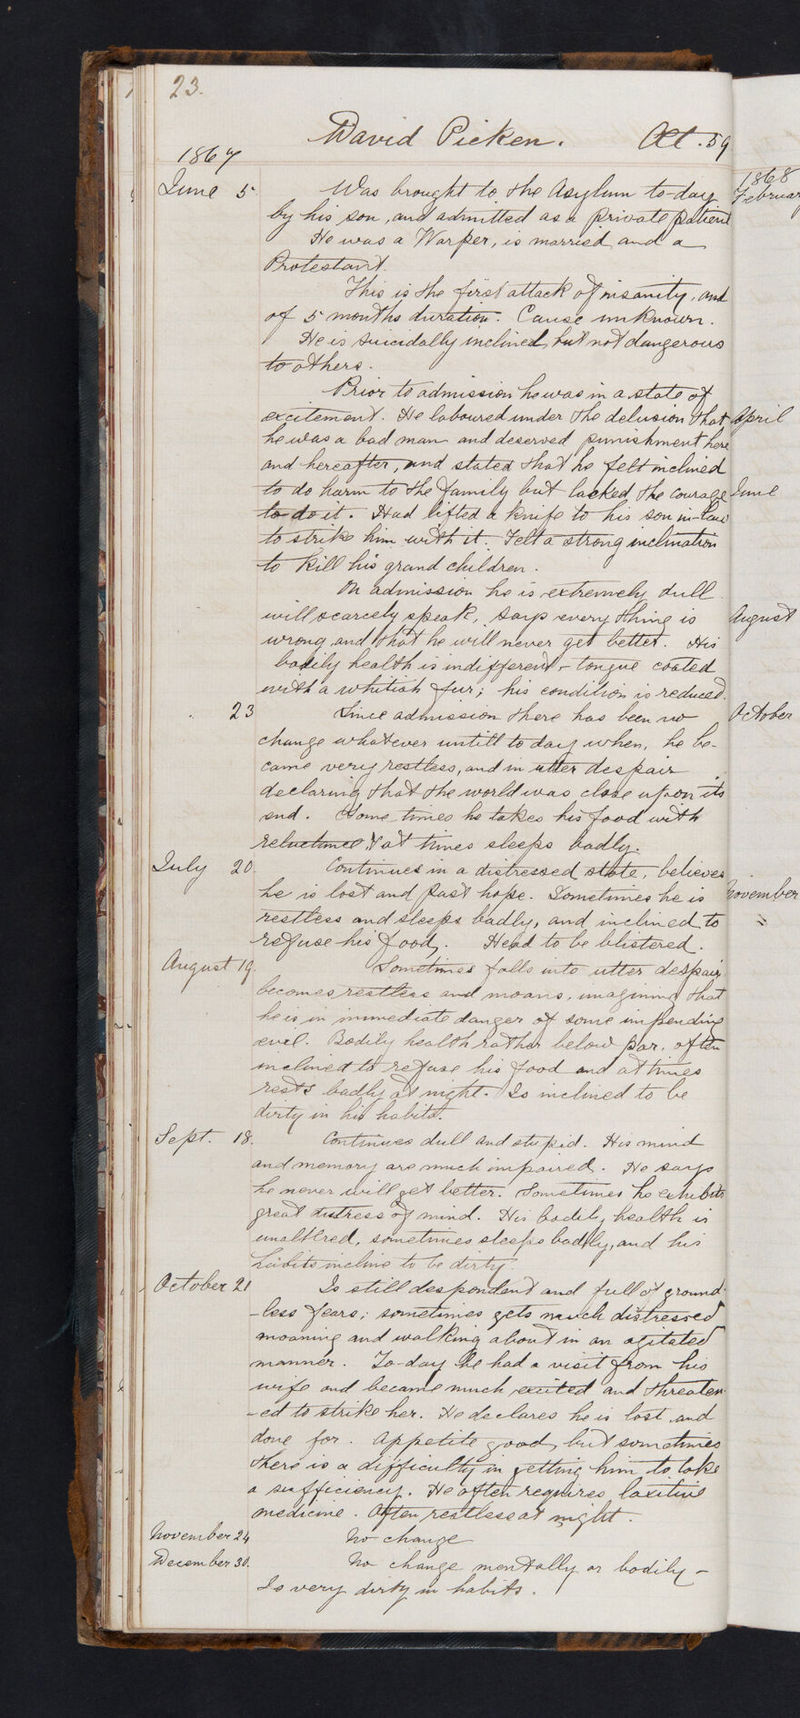 23.
David Picken. Æt. 59
1867
June 5 Was brought to the Asylum to-day
by his son, and admitted as a private patient
He was a Warper, is married and a
Protestant.
This is the first attack of insanity, and
of 5 months duration. Cause unknown.
He is suicidally inclined, but not dangerous
to others.
Prior to admission he was in a state of
excitement. He laboured under the delusion that
he was a bad man and deserved punishment here
and hereafter, and stated that he felt inclined
to do harm to the family but lacked the courage
to do it. Had lifted a knife to his son in-law
to strike him with it. Felt a strong inclination
to kill his grand children.
On admission he is extremely dull
will scarcely speak, says every thing is
wrong and that he will never get better. His
bodily health is indifferent - tongue coated
with a whitish fur; his condition is reduced.
23 Since admission there has been no
change whatever untill to day when, he be-
came very restless, and in utter despair
declaring that the world was close upon its
end. Some times he takes his food with
reluctance & at times sleeps badly.
July 20. Continues in a distressed state, believes
he is lost and past hope. Sometimes he is
restless and sleeps badly, and inclined to
refuse his food. Head to be blistered.
August 19. Sometimes falls into utter despair,
becomes restless and moans, imagining that
he is in immediate danger of some impending
evil. Bodily health rather below par. often
inclined to refuse his food and at times
rests badly at night. Is inclined to be
dirty in his habits.
Sept. 18. Continues dull and stupid. His mind
and memory are much impaired. He says
he never will get better. Sometimes he exhibits
great distress of mind. His bodily health is
unaltered, sometimes sleeps badly, and his
habits incline to be dirty
October 21 Is still despondent and full of ground-
-less fears; sometimes gets much distressed
moaning and walking about in an agitated
manner. To-day he had a visit from his
wife and became much excited and threaten-
-ed to strike her. He declares he is lost and
done for. Appetite good, but sometimes
there is a difficulty in getting him to take
a sufficiency. He often requires laxitive
medicine. Often restless at night.
November 24 No change
December 30. No change mentally or bodily -
Is very dirty in habits.
1868
Februar
April
June
August
October
November
"